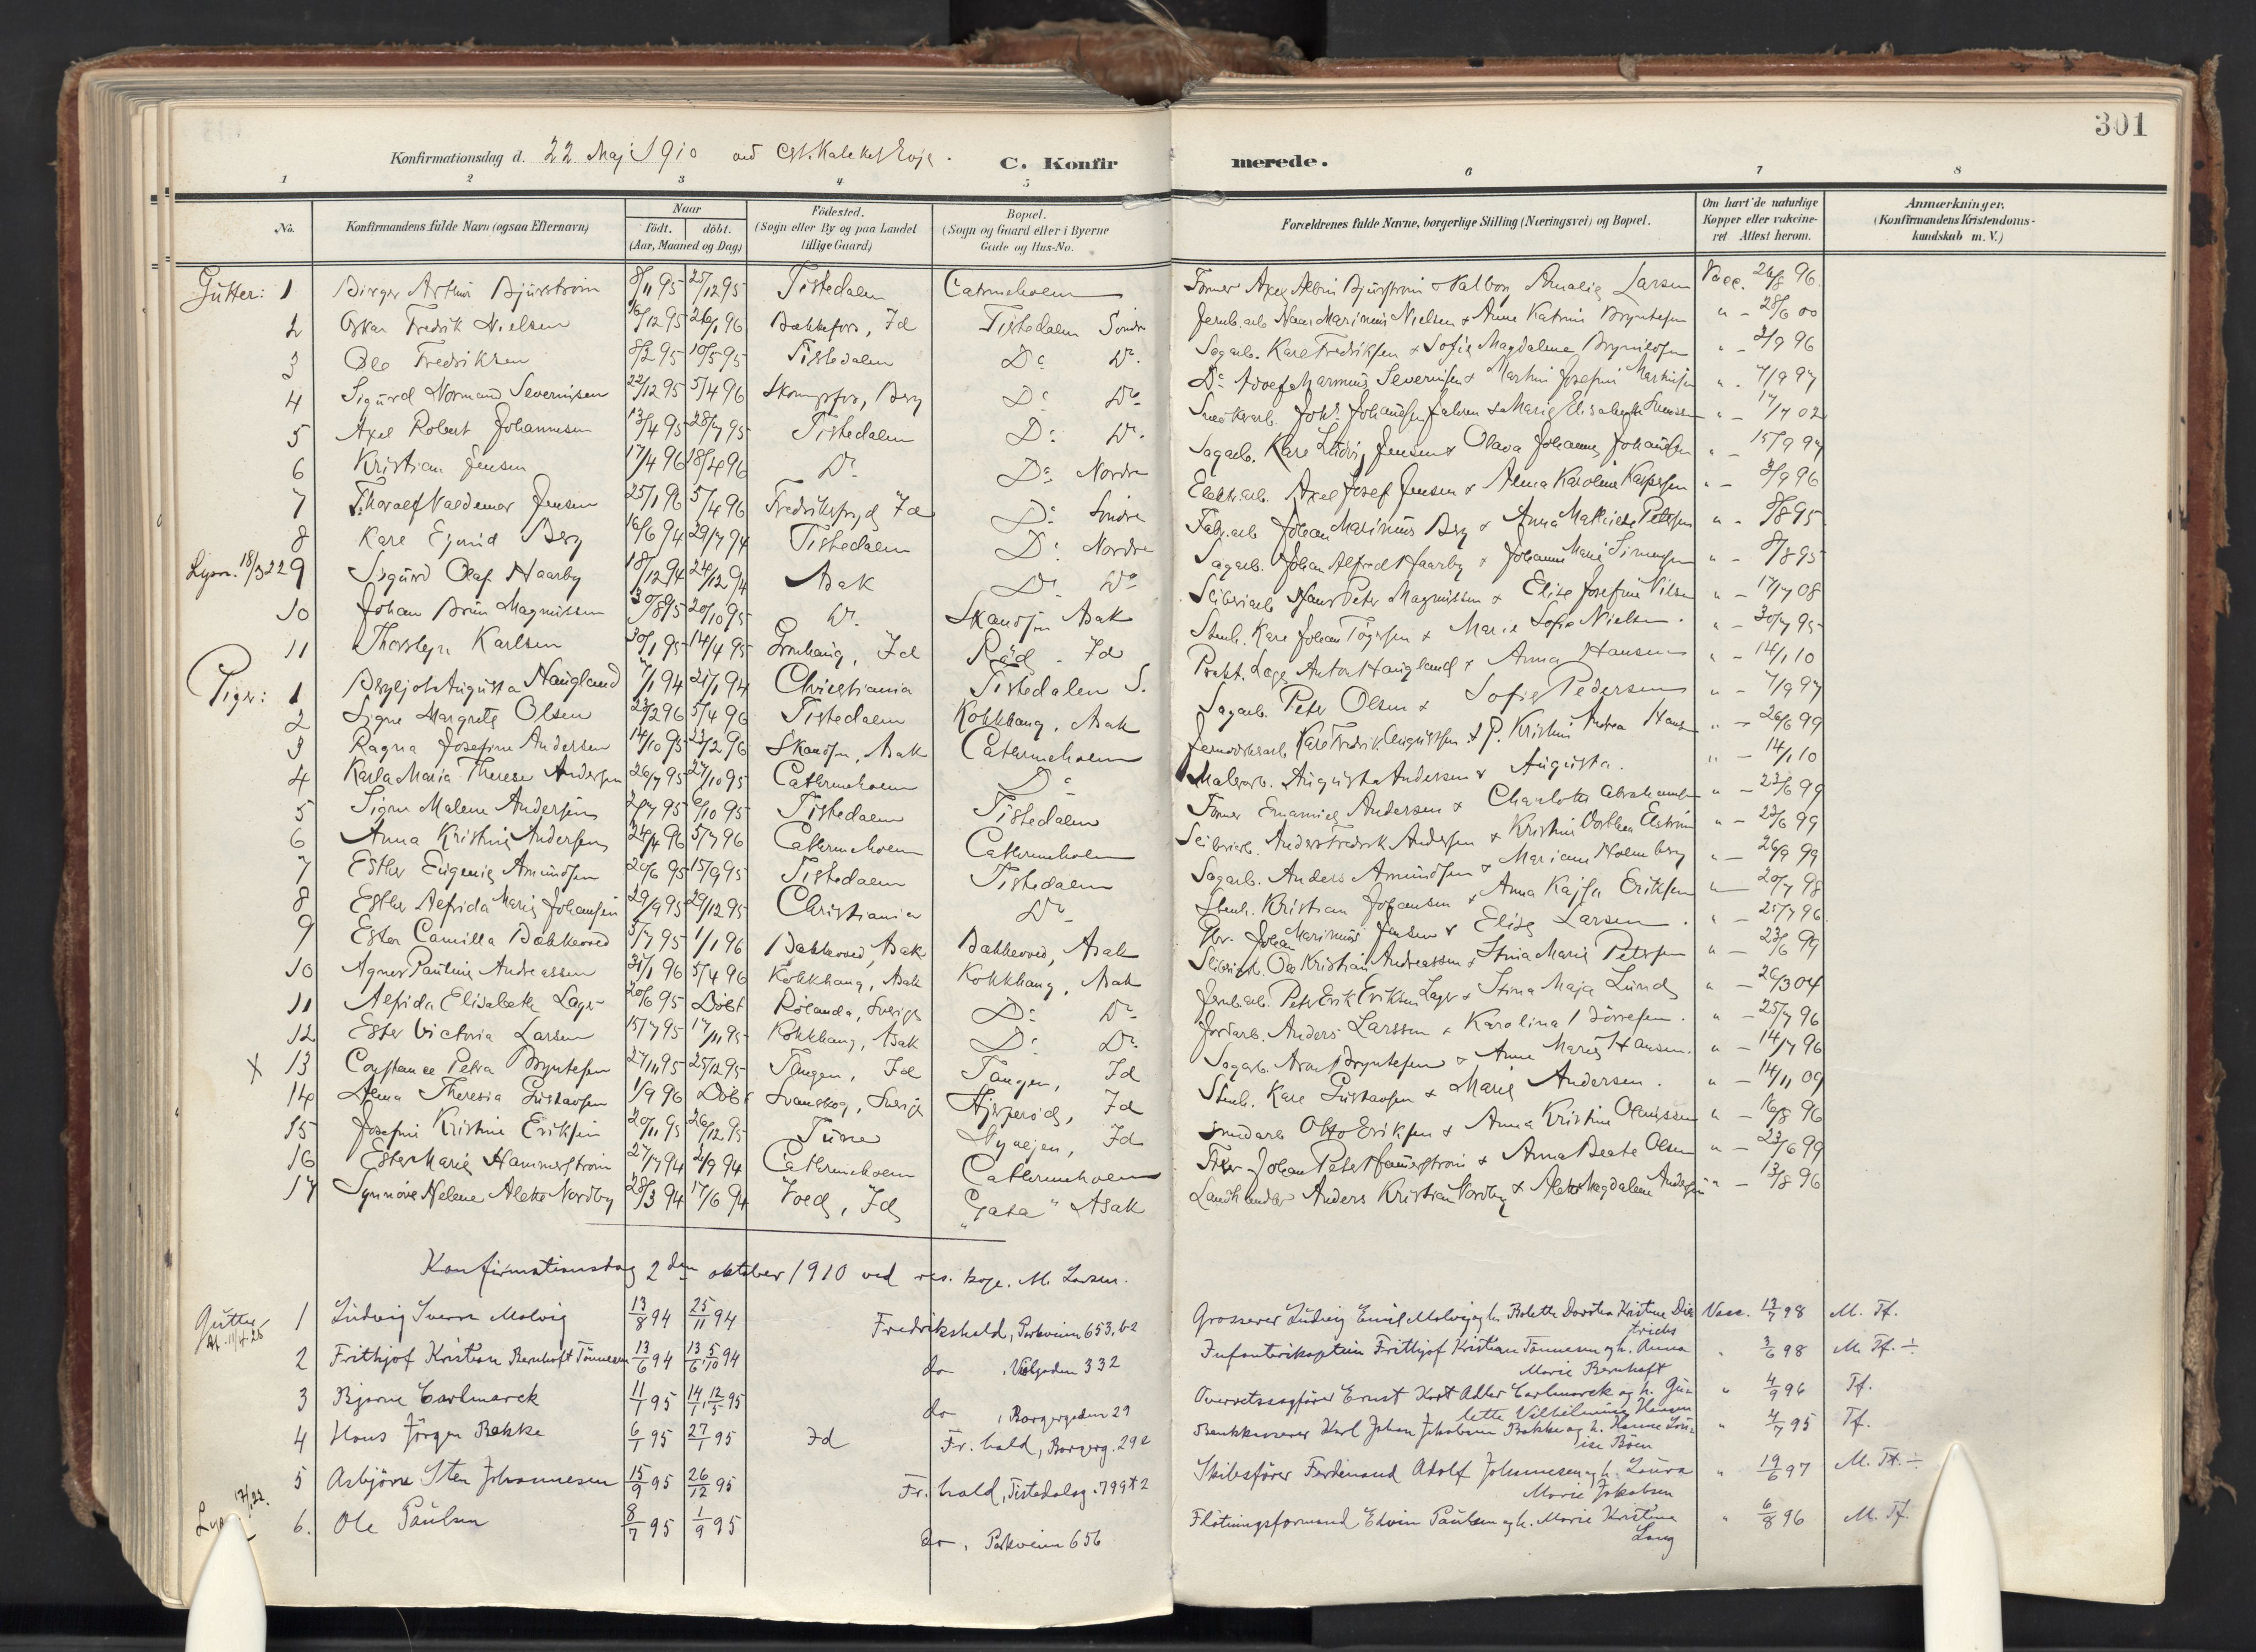 301
Konfirmationsdag d. 22 Maj 1910 ved
C. Konfirmerede.
1 2 3 4 5 6 7 8
No. Konfirmandens fulde Navn (ogsaa Efternavn) Naar født. døbt. (Aar, Maaned og Dag) Fødested. (Sogn eller By og paa Landet tillige Gaard) Bopæl. (Sogn og Gaard eller i Byerne Gade og Hus-No. Forældrenes fulde Navne, borgerlige Stilling (Næringsvei) og Bopæl. Om havt de naturlige Kopper eller vakcineret Attest herom. Anmærkninger. (Konfirmandens Kristendomskundskab m. V.)
Gutter: 1 Birger Arthur Bjurstrøm 8/11 95 25/12 95 Tistedalen Catrineholm Former Axel Albin Bjurstrøm & Valborg Amalie Larsen Vacc. 26/8 96
2 Oskar Fredrik Nielsen 16/12 95 26/1 96 Bakkefos, Id Tistedalen Søndre Jernb.arb. Hans Marinius Nielsen & Anne Katrine Bryntesen " - 28/6 00
3 Ole Fredriksen 8/2 95 10/5 95 Tistedalen Do Do. Sagarb. Karl Fredriksen & Sofie Magdalene " - 2/9 96
4 Sigurd Normand Severinsen 22/12 95 5/4 96 Skonningsfos, Berg Do Do Do Adolf Marinius Severinsen & Martine Josefine " - 7/9 97
5 Axel Robert Johannesen 13/4 95 28/7 95 Tistedalen Do Do. Johs. Johansen & Marie Elisabeth Svensen " - 17/7 02
6 Kristian Jensen 17/4 96 18/4 96 Do Do Nordre Sagarb. Karl Ludvig Jensen & Olava Johanne Johansen " - 15/9 97
7 Thoralf Valdemar Jensen 25/1 96 5/4 96 Fredriksfryd, Id Do Søndre Elektr.arb. Axel Josef Jensen & Alma Karoline Kaspersen " - 3/9 96
8 Karl Ejvind Berg 16/6 94 29/7 94 Tistedalen Do Nordre Fabr.arb. Johan Marinius Berg & Anna Mathilde Pettersen " - 8/8 95
Lysn. 18/3 22 9 Sigurd Olaf Haarby 18/12 94 24/12 94 Asak Do Do Sagarb. Johan Alfred Haarby & Johanne Marie Simensen " - 8/8 95
10 Johan Brun Magnussen 30/8 95 20/10 95 Do. Skandsen Asak Sliberiarb. Hans Peter Magnussen & Elise Josefine Nilsen " - 17/7 08
11 Thorbjørn Karlsen 30/1 95 14/4 95 Grønhaug, Id Rød - Id Stenh. Karl Johan Tøgersen & Marie Sofie Nielsen. " - 30/7 95
Piger: 1 Bergljot Augusta Haugland 7/1 94 21/1 94 Christiania Tistedalen S. Prakt. Læge Anton Haugland & Anna Hansen " - 14/1 10
2 Signe Margrete Olsen 23/2 96 5/4 96 Tistedalen Kokkhaug, Asak Sagarb. Peter Olsen & Sofie Pedersen " - 7/9 97
3 Ragna Josefine Andersen 14/10 95 23/2 96 Skandsen, Asak Catrineholm Jernverksarb. Karl Fredrik Augustsen & P. Kristine Andrea Hansen " - 26/6 99
4 Karla Maria Therese Andersen 26/7 95 27/10 95 Catrineholm Do Malerarb. August Andersen & Augusta. " - 14/1 10
5 Signe Malene Andersen 2/7 95 6/10 95 Tistedalen Tistedalen Former Emanuel Andersen & Charlotte Abrahamsen " - 23/6 99
6 Anna Kristine Andersen 24/4 96 5/7 96 Catrineholm Catrineholm Sliberiarb. Anders Fredrik Andersen & Kristine Dorthea Elstrøm " - 23/6 99
7 Esther Eugenie Amundsen 20/6 95 15/9 95 Tistedalen Tistedalen Sagarb. Anders Amundsen & Mariane Holmberg " - 26/9 99
8 Esther Alfrida Marie Johansen 29/9 95 29/12 95 Christiania Do Stenh. Kristian Johansen & Anna Kajsa Eriksen " - 20/7 98
9 Ester Camilla Bakkerød 5/7 95 1/1 96 Bakkerød, Asak Bakkerød, Asak Gbr. Johan Marinius Jensen & Elise Larsen. " - 25/7 96
10 Agnes Pauline Andreassen 31/1 96 5/4 96 Kokkhaug, Asak Kokkhaug, Asak Sliberiarb. Ole Kristian Andreassen & Stina Marie Petersen " - 23/6 99
11 Alfrida Elisabeth Lager 20/6 95 Døbt Rølanda, Sverige Do Do Jernb.arb. Peter Erik Eriksen Lager & Stina Maja Lund " - 26/3 04
12 Ester Victoria Larsen 15/7 95 17/11 95 Kokkhaug, Asak Do Do Jordarb. Anders Larssen & Karolina Børresen. " - 25/7 96
X 13 Constance Petra Bryntesen 27/11 95 25/12 95 Tangen, Id Tangen, Id Sagarb. Aron Bryntesen & Anne Marie Hansen. " - 14/7 96
14 Alma Theresia Gustavsen 1/9 96 Døbt Svanskog, Sverige Hjerperød, Id Stenh. Karl Gustavsen & Marie Andersen. " - 14/11 09
15 Josefine Kristine Eriksen 20/11 95 26/12 95 Tune Nyvejen, Id Otto Eriksen & Anna Kristine Olaussen " - 16/8 96
16 Ester Marie Hammerstrøm 27/7 94 2/9 94 Catrineholm Catrineholm Johan Peter Hammerstrøm & Anna Beate Olsen " - 23/6 99
17 Synnøve Helene Alette Nordby 28/3 94 17/6 94 Id "Gata" Asak Landhandler Anders Kristian Nordby & Alette Magdalene Andersen " - 13/8 96
Konfirmationsdag 2den oktober 1910 ved res. kap. M. Larsen.
Gutter 1 Ludvig Sverre Molvig 13/8 94 25/11 94 Fredrikshald, Parkveien 653, b2 Grosserer Ludvig Emil Molvig og h. Bolette Dorothea Kristine Didrichs Vacc. 13/7 98 M. Tf.
Att. 11/4-28
2 Frithjof Kristian Bernhoft Tønnesen 13/6 94 13/6, 5/10 94 do , Volgaden 332 Infanterikaptein Frithjof Kristian Tønnesen og h. Anna Marie Bernhoft " 3/6 98 M. Tf. ÷
3 Bjarne Carlmarck 11/1 95 14/1, 12/5 95 do , Borgergaden 29 Overretssagfører Ernst Kort Adler Carlmarck og h. Gunlette Vilhelmine Hansen " 4/9 96 Tf.
4 Hans Jørgen Bakke 6/1 95 27/1 95 Id Fr.hald, Borgerg. 29 Bankkasserer Karl Johan Jakobsen Bakke og h. Hanne Louise Böen " 4/7 95 Tf.
5 Asbjørn Sten Johannesen 15/9 95 26/12 95 Fr.hald, Tistedalsg. 799 * 2 Skibsfører Ferdinand Adolf Johannesen og h. Laura Marie Jakobsen " 19/6 97 M. Tf. ÷
6. Ole Paulsen 8/7 95 1/9 95 do, Parkveien 656 Fløtningsformand Edvin Paulsen og h. Marie Kristine Lang " 6/8 96 M. Tf.